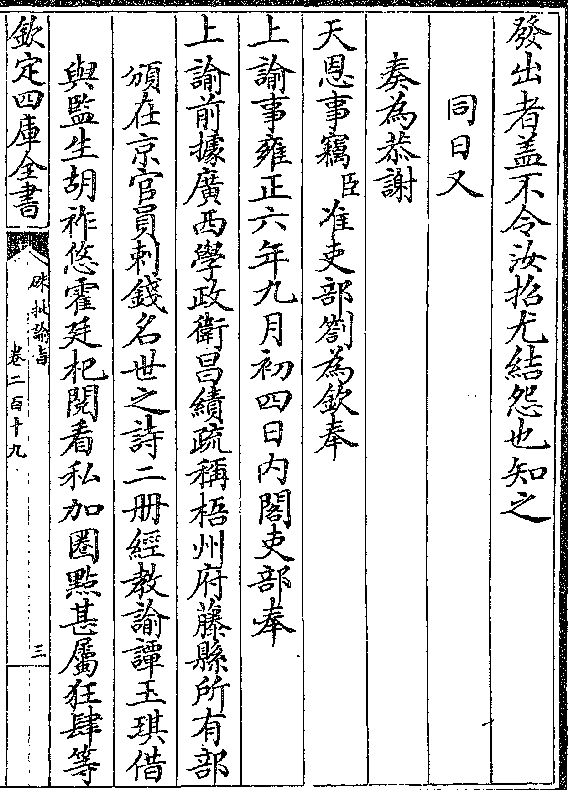 發出者蓋不令汝招尤結怨也知之
同日又
奏為恭謝
天恩事竊臣准吏部劄為欽奉
上諭事雍正六年九月初四日內閣吏部奉
上諭前據廣西學政衛昌績疏稱梧州府藤縣所有部
頒在京官員刺錢名世之詩二冊經教諭譚玉琪借
與監生胡祚悠霍廷杞閱看私加圈點甚屬狂肆等
欽定四庫全書
硃批諭旨
卷二百十九
三